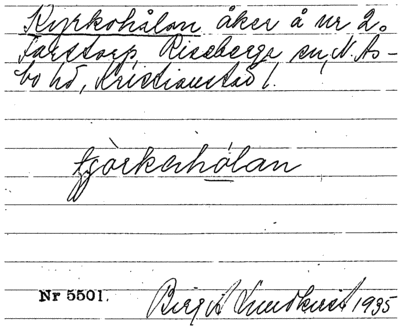 Kyrkohålan åker å nr 2.
Farstorp, Riseberga sn, N. Ås-
bo hd, Kristianstad l.
Nr 5501. Birgit Lundkvist 1935